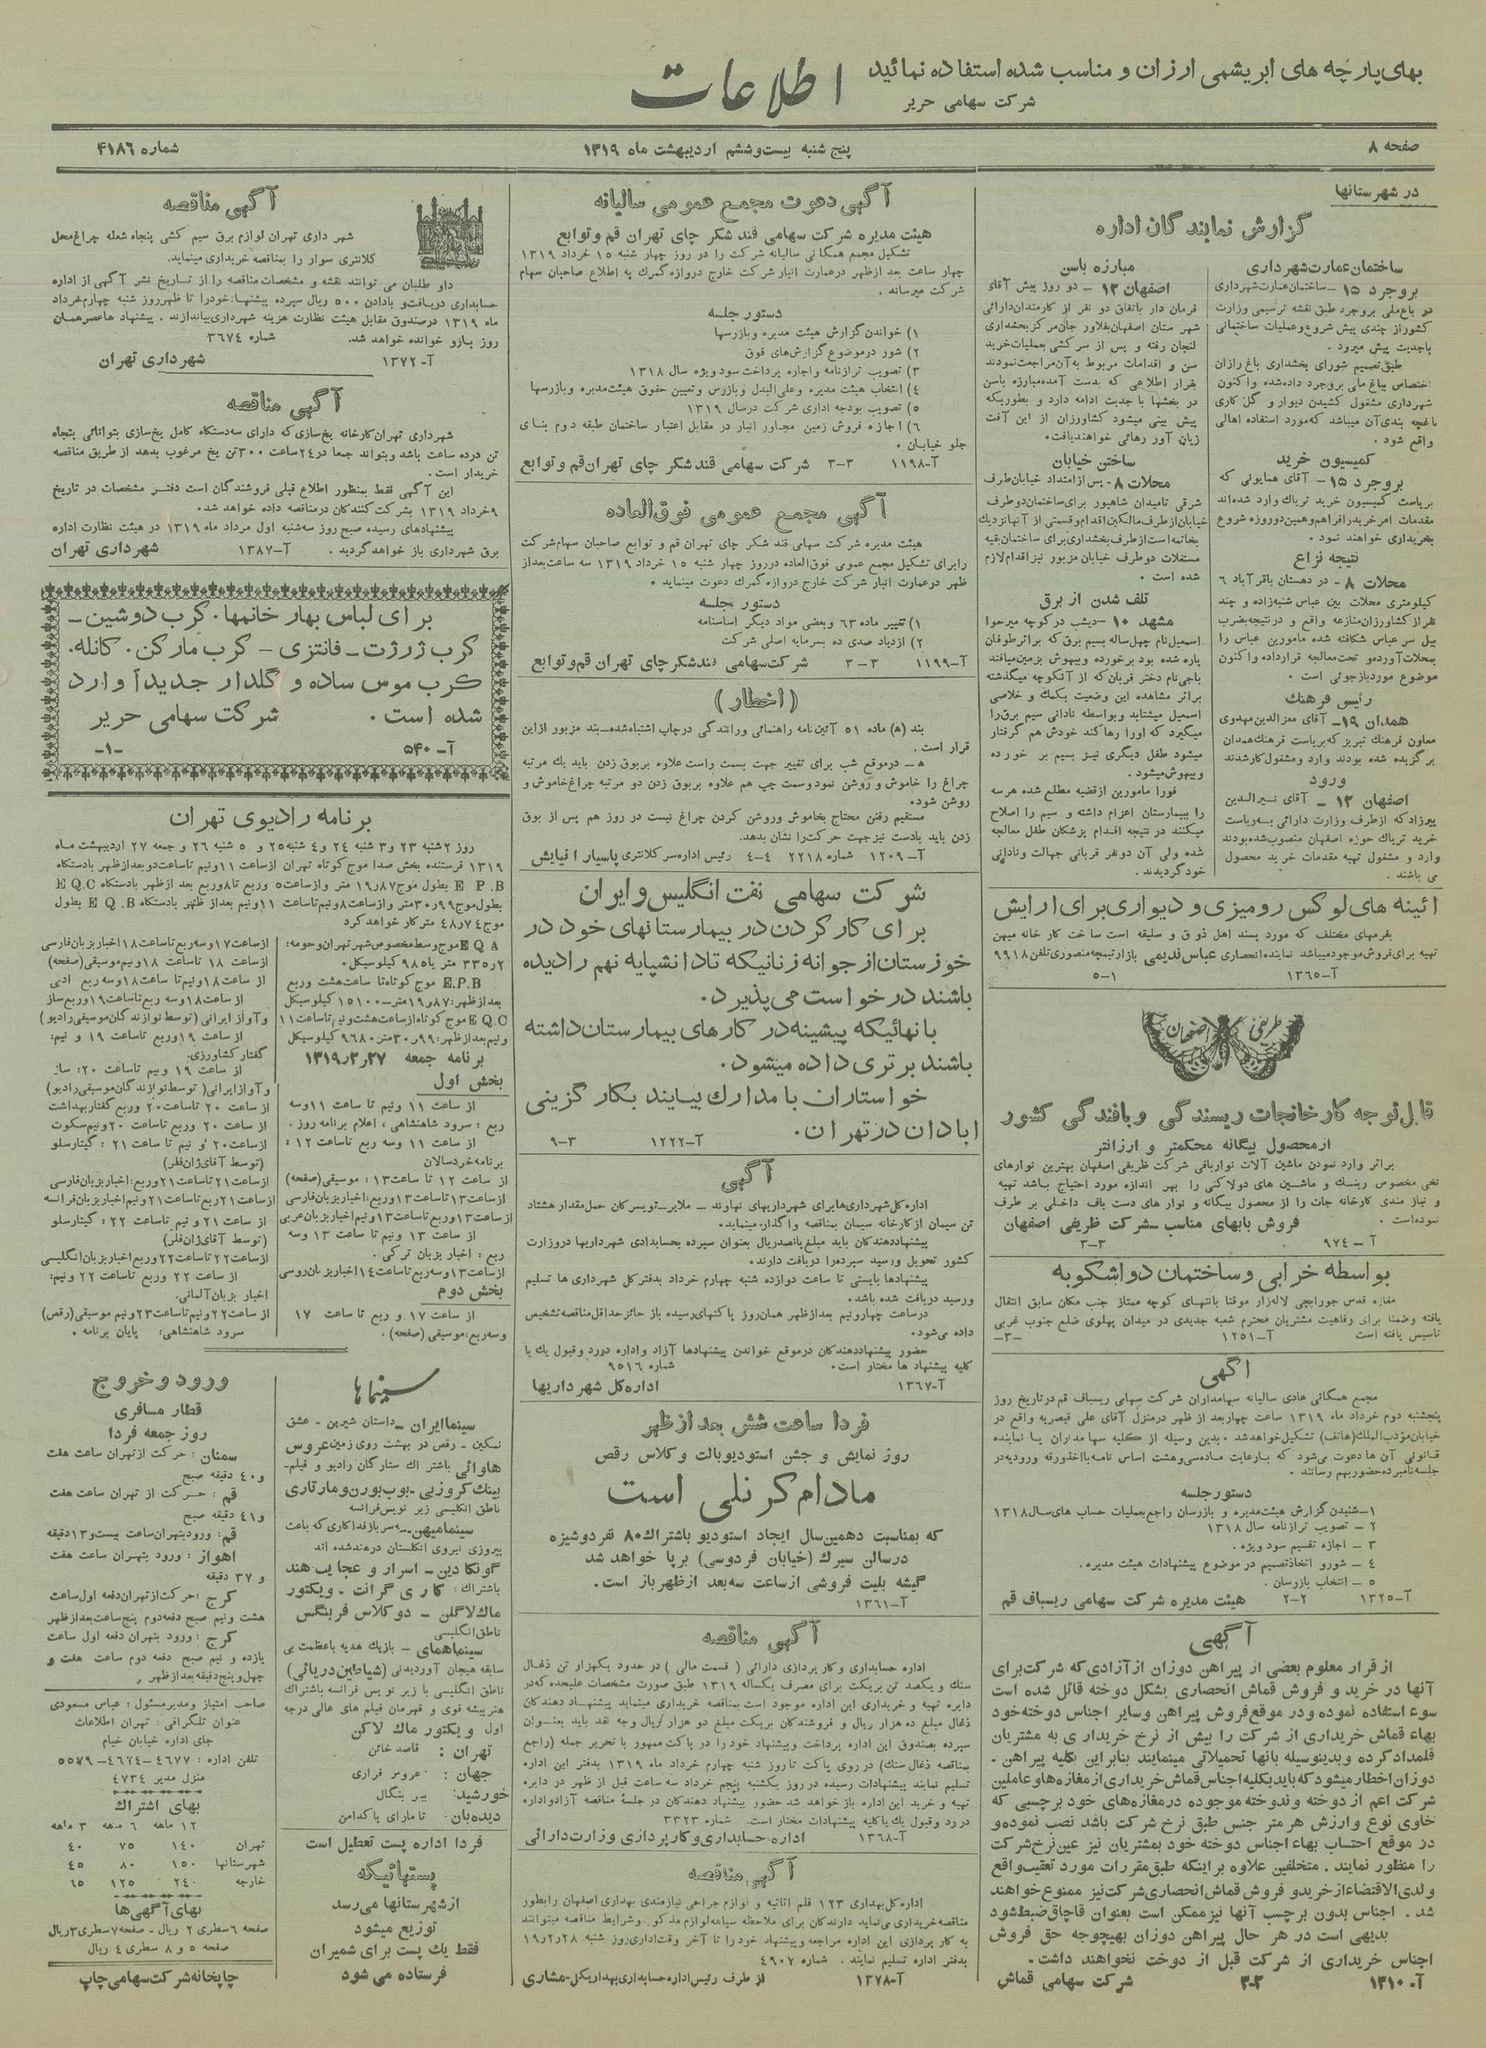 بهای پارچه های ابریشمی ارزان و مناسب شده استفاده نمائید
شرکت سهامی حریر
اطلاعات
صفحه ۸
پنج شنبه بیست و ششم اردیبهشت ماه ۱۳۱۹
شماره ۴۱۸۶
در شهرستانها
گزارش نمایندگان اداره
ساختمان عمارت شهرداری
بروجرد ۱۵ - ساختمان عمارت شهرداری
در باغ ملی بروجرد طبق نقشه ترسیمی وزارت
کشور از چندی پیش شروع و عملیات ساختمانی
باجدیت پیش میرود.
طبق تصمیم شورای بخشداری باغ رازان
اختصاص بباغ ملی بروجرد داده شده و اکنون
شهرداری مشغول کشیدن دیوار و گل کاری
باغچه بندی آن میباشد که مورد استفاده اهالی
واقع شود.
کمیسیون خرید
بروجرد ۱۵ - آقای همایونی که
بریاست کمیسیون خرید تریاک وارد شده اند
مقدمات امر خرید را فراهم و همین دو روزه شروع
بخریداری خواهند نمود.
نتیجه نزاع
محلات ۸ - در دهستان باقر آباد ۶
کیلومتری محلات بین عباس شنبه زاده و چند
نفر از کشاورزان منازعه واقع و در نتیجه بضرب
بیل سر عباس شکافته شده مامورین عباس را
بمحلات آورده و تحت معالجه قرار داده و اکنون
موضوع مورد بازجوئی است.
رئیس فرهنگ
همدان ۱۹ - آقای معزالدین مهدوی
معاون فرهنگ تبریز که بریاست فرهنگ همدان
برگزیده شده بودند وارد و مشغول کار شدند
ورود
اصفهان ۱۲ - آقای نسیرالدین
پیرزاد که از طرف وزارت دارائی بریاست
خرید تریاک حوزه اصفهان منصوب شده بودند
وارد و مشغول تهیه مقدمات خرید محصول
می باشند.
مبارزه باسن
اصفهان ۱۲ - دو روز پیش آقای
فرمان دار باتفاق دو نفر از کارمندان دارائی
شهرستان اصفهان بفلاورجان مرکز بخشداری
لنجان رفته و پس از سرکشی بعملیات خرید
سن و اقدامات مربوط به آن مراجعت نمودند
بقرار اطلاعی که بدست آمده مبارزه باسن
در بخشها با جدیت ادامه دارد و بطوریکه
پیش بینی میشود کشاورزان از این آفت
زیان آور رهائی خواهند یافت.
ساختن خیابان
محلات ۸ - پس از امتداد خیابان طرف
شرقی تامیدان شاهپور برای ساختمان دوطرف
خیابان از طرف مالکین اقدام و قسمتی از آنها نزدیک
بخاتمه است از طرف بخشداری برای ساختمان بقیه
مستغلات دو طرف خیابان مزبور نیز اقدام لازم
شده است.
تلف شدن از برق
مشهد ۱۰ - دیشب در کوچه میرحوا
اسمعیل نام چهل ساله بسیم برق که براثر طوفان
پاره شده بود برخورده و بیهوش بزمین میافتد
باجی نام دختر قربان که از آنکوچه میگذشته
براثر مشاهده این وضعیت بکمک و خلاصی
اسمعیل میشتابد و بواسطه نادانی سیم برق را
میگیرد که اورا رها کند خودش هم گرفتار
میشود طفل دیگری نیز بسیم بر خورده
و بیهوش میشود.
فورا مامورین از قضیه مطلع شده هر سه
را ببیمارستان اعزام داشته و سیم را اصلاح
میکنند در نتیجه اقدام پزشکان طفل معالجه
شده ولی آن دو نفر قربانی جهالت و نادانی
خود گردیدند.
آئینه های لوکس رومیزی و دیواری برای آرایش
بفرمهای مختلف که مورد پسند اهل ذوق و سلیقه است ساخت کارخانه میهن
تهیه برای فروش موجود میباشد نماینده انحصاری عباس ندیمی بازار تیمچه منصوری تلفن ۹۹۱۸
آ-۱۳۶۵ ۵-۱
ظریفی اصفهان
قابل توجه کارخانجات ریسندگی و بافندگی کشور
از محصول بیگانه محکمتر و ارزانتر
براثر وارد نمودن ماشین آلات نواربافی شرکت ظریفی اصفهان بهترین نوارهای
نخی مخصوص رینگ و ماشین های دولاکنی را بهر اندازه مورد احتیاج باشد تهیه
و نیازمندی کارخانه جات را از محصول بیگانه و نوار های دست باف داخلی بر طرف
نموده است. فروش ببهای مناسب - شرکت ظریفی اصفهان
آ - ۹۷۴ ۳-۳
بواسطه خرابی و ساختمان دو اشکوبه
مغازه قدس جورابچی لاله زار موقتا بانتهای کوچه ممتاز جنب مکان سابق انتقال
یافته و ضمنا برای رفاهیت مشتریان محترم شعبه جدیدی در میدان پهلوی ضلع جنوب غربی
تاسیس یافته است آ-۱۲۵۱ -۳-
آگهی
مجمع همگانی عادی سالیانه سهامداران شرکت سهامی ریسباف قم در تاریخ روز
پنجشنبه دوم خرداد ماه ۱۳۱۹ ساعت چهار بعد از ظهر در منزل آقای علی قیصریه واقع در
خیابان مؤدب الملک (هاتف) تشکیل خواهد شد. بدین وسیله از کلیه سهامداران یا نماینده
قانونی آن ها دعوت می شود که با رعایت ماده سی و هشت اساس نامه با اخذ ورقه ورودیه در
جلسه نامبرده حضور بهم رسانند.
دستور جلسه
۱- شنیدن گزارش هیئت مدیره و بازرسان راجع بعملیات حساب های سال ۱۳۱۸
۲ - تصویب ترازنامه سال ۱۳۱۸
۳ - اجازه تقسیم سود ویژه.
۴ - شور و اتخاذ تصمیم در موضوع پیشنهادات هیئت مدیره.
۵ - انتخاب بازرسان.
آ-۱۳۲۵ ۲-۲ هیئت مدیره شرکت سهامی ریسباف قم
آگهی
از قرار معلوم بعضی از پیراهن دوزان از آزادی که شرکت برای
آنها در خرید و فروش قماش انحصاری بشکل دوخته قائل شده است
سوء استفاده نموده و در موقع فروش پیراهن و سایر اجناس دوخته خود
بهاء قماش خریداری از شرکت را بیش از نرخ خریداری به مشتریان
قلمداد کرده و بدینوسیله بانها تحمیلاتی مینمایند بنابراین بکلیه پیراهن -
دوزان اخطار میشود که باید بکلیه اجناس قماش خریداری از مغازه ها و عاملین
شرکت اعم از دوخته و ندوخته موجوده در مغازه های خود برچسبی که
حاوی نوع و ارزش هر متر جنس طبق نرخ شرکت باشد نصب نموده و
در موقع احتساب بهاء اجناس دوخته خود بمشتریان نیز عین نرخ شرکت
را منظور نمایند. متخلفین علاوه بر اینکه طبق مقررات مورد تعقیب واقع
ولدی الاقتضاء از خرید و فروش قماش انحصاری شرکت نیز ممنوع خواهند
شد. اجناس بدون برچسب آنها نیز ممکن است بعنوان قاچاق ضبط شود
بدیهی است در هر حال پیراهن دوزان بهیچوجه حق فروش
اجناس خریداری از شرکت قبل از دوخت نخواهند داشت.
آ- ۱۳۱۰ ۳-۲ شرکت سهامی قماش
آگهی دعوت مجمع عمومی سالیانه
هیئت مدیره شرکت سهامی قند شکر چای تهران قم و توابع
تشکیل مجمع همگانی سالیانه شرکت را در روز چهار شنبه ۱۵ خرداد ۱۳۱۹
چهار ساعت بعد از ظهر در عمارت انبار شرکت خارج دروازه گمرک به اطلاع صاحبان سهام
شرکت میرساند.
دستور جلسه
۱) خواندن گزارش هیئت مدیره و بازرسها
۲) شور در موضوع گزارش های فوق
۳) تصویب ترازنامه و اجازه پرداخت سود ویژه سال ۱۳۱۸
۴) انتخاب هیئت مدیره و علی البدل و بازرس و تعیین حقوق هیئت مدیره و بازرسها
۵) تصویب بودجه اداری شرکت در سال ۱۳۱۹
۶) اجازه فروش زمین مجاور انبار در مقابل اعتبار ساختمان طبقه دوم بنای
جلو خیابان.
آ-۱۱۹۸ ۳-۳ شرکت سهامی قند شکر چای تهران قم و توابع
آگهی مجمع عمومی فوق العاده
هیئت مدیره شرکت سهامی قند شکر چای تهران قم و توابع صاحبان سهام شرکت
را برای تشکیل مجمع عمومی فوق العاده در روز چهار شنبه ۱۵ خرداد ۱۳۱۹ سه ساعت بعد از
ظهر در عمارت انبار شرکت خارج دروازه گمرک دعوت مینماید.
دستور جلسه
۱) تغییر ماده ۶۳ و بعضی مواد دیگر اساسنامه
۲) ازدیاد صدی ده بسرمایه اصلی شرکت
آ-۱۱۹۹ ۳-۳ شرکت سهامی قند شکر چای تهران قم و توابع
(اخطار)
بند (ه) ماده ۵۱ آئین نامه راهنمائی و رانندگی در چاپ اشتباه شده - بند مزبور از این
قرار است.
ه - در موقع شب برای تغییر جهت بسمت راست علاوه بر بوق زدن باید یک مرتبه
چراغ را خاموش و روشن نمود و سمت چپ هم علاوه بر بوق زدن دو مرتبه چراغ خاموش و
روشن شود.
مستقیم رفتن محتاج بخاموش و روشن کردن چراغ نیست در روز هم پس از بوق
زدن باید با دست نیز جهت حرکت را نشان بدهد.
آ-۱۲۰۹ شماره ۲۲۱۸ ۴-۴ رئیس اداره سرکلانتری پاسیار ۱ نیایش
شرکت سهامی نفت انگلیس و ایران
برای کار کردن در بیمارستانهای خود در
خوزستان از جوانه زنانیکه تا دانشپایه نهم را دیده
باشند درخواست می پذیرد.
بانهائیکه پیشینه در کارهای بیمارستان داشته
باشند برتری داده میشود.
خواستاران با مدارک بیایند بکار گزینی
آبادان در تهران. آ-۱۲۲۲ ۹-۳
آگهی
اداره کل شهرداریها برای شهرداریهای نهاوند - ملایر - تویسرکان حمل مقدار هشتاد
تن سیمان از کارخانه سیمان بمناقصه واگذار مینماید.
پیشنهاددهندگان باید مبلغ پانصد ریال بعنوان سپرده بحسابداری شهرداریها در وزارت
کشور تحویل و رسید سپرده را دریافت دارند.
پیشنهادها بایستی تا ساعت دوازده شنبه چهارم خرداد بدفتر کل شهرداری ها تسلیم
و رسید دریافت شده باشد.
در ساعت چهار و نیم بعد از ظهر همان روز پاکتهای رسیده باز حائز حداقل مناقصه تشخیص
داده می شود.
حضور پیشنهاددهندگان در موقع خواندن پیشنهادها آزاد و اداره در رد و قبول یک یا
کلیه پیشنهاد ها مختار است. شماره ۹۵۱۶
آ-۱۳۶۷ اداره کل شهرداریها
فردا ساعت شش بعد از ظهر
روز نمایش و جشن استودیو بالت و کلاس رقص
مادام کرنلی است
که بمناسبت دهمین سال ایجاد استودیو باشتراک ۸۰ نفر دوشیزه
در سالن سیرک (خیابان فردوسی) برپا خواهد شد
گیشه بلیت فروشی از ساعت سه بعد از ظهر باز است.
آ-۱۳۶۱
آگهی مناقصه
اداره حسابداری و کارپردازی دارائی (قسمت مالی) در حدود یکهزار تن ذغال
سنگ و یکصد تن بریکت برای مصرف یکساله ۱۳۱۹ طبق صورت مشخصات علیحده که در
دایره تهیه و خریداری این اداره موجود است بمناقصه خریداری مینماید پیشنهاد دهندگان
ذغال مبلغ ده هزار ریال و فروشندگان بریکت مبلغ دو هزار ریال وجه نقد باید بعنوان
سپرده بصندوق این اداره پرداخت و پیشنهاد خود را در پاکت ممهور با تحریر جمله (راجع
بمناقصه ذغال سنگ) در روی پاکت تا روز شنبه چهارم خرداد ماه ۱۳۱۹ بدفتر این اداره
تسلیم نمایند پیشنهادات رسیده در روز یکشنبه پنجم خرداد سه ساعت قبل از ظهر در دایره
تهیه و خرید این اداره باز خواهد شد حضور پیشنهاد دهندگان در جلسه مناقصه آزاد و اداره
در رد و قبول یک یا کلیه پیشنهادات مختار است. شماره ۳۳۲۳
آ-۱۳۶۸ اداره حسابداری و کارپردازی وزارت دارائی
آگهی مناقصه
اداره کل بهداری ۱۲۳ قلم اثاثیه و لوازم جراحی نیازمندی بهداری اصفهان را بطور
مناقصه خریداری می نماید دارندگان برای ملاحظه سیاهه لوازم مذکور و شرایط مناقصه میتوانند
به کار پردازی این اداره مراجعه و پیشنهاد خود را تا آخر وقت اداری روز شنبه ۱۹ر۲ر۲۸
بدفتر اداره تسلیم نمایند. شماره ۴۹۰۲
آ-۱۳۷۸ از طرف رئیس اداره حسابداری بهداری کل - مشاری
آگهی مناقصه
شهرداری تهران لوازم برق سیم کشی پنجاه شعله چراغ محل
کلانتری سوار را بمناقصه خریداری مینماید.
داو طلبان می توانند نقشه و مشخصات مناقصه را از تاریخ نشر آگهی از اداره
حسابداری دریافت و با دادن ۵۰۰ ریال سپرده پیشنهاد خود را تا ظهر روز شنبه چهارم خرداد
ماه ۱۳۱۹ در صندوق مقابل هیئت نظارت هزینه شهرداری بیاندازند. پیشنهاد ها عصر همان
روز باز و خوانده خواهد شد. شماره ۳۶۷۴
آ-۱۳۷۲ شهرداری تهران
آگهی مناقصه
شهرداری تهران کارخانه یخ سازی که دارای سه دستگاه کامل یخ سازی بتوانائی پنجاه
تن در ده ساعت باشد و بتواند جمعا در ۲۴ ساعت ۳۰۰ تن یخ مرغوب بدهد از طریق مناقصه
خریدار است.
این آگهی فقط بمنظور اطلاع قبلی فروشندگان است دفتر مشخصات در تاریخ
۹ خرداد ۱۳۱۹ بشرکت کنندگان در مناقصه داده خواهد شد.
پیشنهادهای رسیده صبح روز سه شنبه اول مرداد ماه ۱۳۱۹ در هیئت نظارت اداره
برق شهرداری باز خواهد گردید. آ-۱۳۸۷ شهرداری تهران
برای لباس بهار خانمها. کرب دوشین -
کرب ژرژت - فانتزی - کرب مارکن. کانله.
کرب موس ساده و گلدار جدیداً وارد
شده است. شرکت سهامی حریر
آ- ۵۴۰ -۱-
برنامه رادیوی تهران
روز ۲ شنبه ۲۳ و ۳ شنبه ۲۴ و ۴ شنبه ۲۵ و ۵ شنبه ۲۶ و جمعه ۲۷ اردیبهشت ماه
۱۳۱۹ فرستنده پخش صدا موج کوتاه تهران از ساعت ۱۱ و نیم تا ساعت دو بعد از ظهر با دستگاه
E P.B بطول موج ۱۹ر۸۷ متر و از ساعت ۵ و ربع تا ۸ و ربع بعد از ظهر با دستگاه E Q.C
بطول موج ۳۰ر۹۹ متر و از ساعت ۸ و نیم تا ساعت ۱۱ و نیم بعد از ظهر با دستگاه E Q.B بطول
موج ۴۸ر۷۴ متر کار خواهد کرد
E Q A موج وسط مخصوص شهر تهران و حومه:
۳۳۵ر۲ متر یا ۹۸۵ کیلوسیکل.
E.P.B موج کوتاه تا ساعت هشت و ربع
بعد از ظهر: ۱۹ر۸۷ متر - ۱۵۱۰۰ کیلوسیکل
E Q C موج کوتاه از ساعت هشت و نیم تا ساعت ۱۱
و نیم بعد از ظهر: ۳۰ر۹۹ متر - ۹۶۸۰ کیلوسیکل
برنامه جمعه ۲۷ر۲ر۱۳۱۹
بخش اول
از ساعت ۱۱ و نیم تا ساعت ۱۱ و سه
ربع: سرود شاهنشاهی، اعلام برنامه روز.
از ساعت ۱۱ و سه ربع تا ساعت ۱۲:
برنامه خردسالان
از ساعت ۱۲ تا ساعت ۱۳: موسیقی (صفحه)
از ساعت ۱۳ تا ساعت ۱۳ و ربع: اخبار بزبان فارسی
از ساعت ۱۳ و ربع تا ساعت ۱۳ و نیم اخبار بزبان عربی
از ساعت ۱۳ و نیم تا ساعت ۱۳ و سه
ربع: اخبار بزبان ترکی.
از ساعت ۱۳ و سه ربع تا ساعت ۱۴ اخبار بزبان روسی
بخش دوم
از ساعت ۱۷ و ربع تا ساعت ۱۷
و سه ربع: موسیقی (صفحه).
از ساعت ۱۷ و سه ربع تا ساعت ۱۸ اخبار بزبان فارسی
از ساعت ۱۸ تا ساعت ۱۸ و نیم موسیقی (صفحه)
از ساعت ۱۸ و نیم تا ساعت ۱۸ و سه ربع ادبی
از ساعت ۱۸ و سه ربع تا ساعت ۱۹ و ربع ساز
و آواز ایرانی (توسط نوازندگان موسیقی رادیو)
از ساعت ۱۹ و ربع تا ساعت ۱۹ و نیم:
گفتار کشاورزی.
از ساعت ۱۹ و نیم تا ساعت ۲۰: ساز
و آواز ایرانی (توسط نوازندگان موسیقی رادیو)
از ساعت ۲۰ تا ساعت ۲۰ و ربع گفتار بهداشت
از ساعت ۲۰ و ربع تا ساعت ۲۰ و نیم سکوت
از ساعت ۲۰ و نیم تا ساعت ۲۱: گیتار سلو
(توسط آقای ژان فلر)
از ساعت ۲۱ تا ساعت ۲۱ و ربع اخبار بزبان فارسی
از ساعت ۲۱ و ربع تا ساعت ۲۱ و نیم اخبار بزبان فرانسه
از ساعت ۲۱ و نیم تا ساعت ۲۲: گیتار سلو
(توسط آقای ژان فلر)
از ساعت ۲۲ تا ساعت ۲۲ و ربع اخبار بزبان انگلیسی
از ساعت ۲۲ و ربع تا ساعت ۲۲ و نیم:
اخبار بزبان آلمانی.
از ساعت ۲۲ و نیم تا ساعت ۲۳ و نیم موسیقی (رقص)
سرود شاهنشاهی: پایان برنامه.
سینماها
سینما ایران - داستان شیرین - عشق
نمکین - رقص در بهشت روی زمین عروس
هاوائی باشتراک ستارگان رادیو و فیلم -
بینک کروزبی - بوب بورن و مارتاری
ناطق انگلیسی زیر نویس فرانسه
سینما میهن - سه سرباز فداکاری که باعث
پیروزی نیروی انگلستان در هند شده اند
گونگادین - اسرار و عجایب هند
باشتراک: کاری گرانت - ویکتور
ماک لاگلن - دوگلاس فربنکس
ناطق انگلیسی
سینما همای - بازیک هدیه باعظمت بی
سابقه هیجان آور دیدنی (شیاطین دریائی)
ناطق انگلیسی با زیر نویس فرانسه باشتراک
هنرپیشه قوی و قهرمان فیلم های عالی درجه
اول ویکتور ماک لاگن
تهران: قاصد خائن
جهان: عروس فراری
خورشید: ببر بنگال
دیده بان: تامارای پاکدامن
فردا اداره پست تعطیل است
پستهائیکه
از شهرستانها می رسد
توزیع میشود
فقط یک پست برای شمیران
فرستاده می شود
ورود و خروج
قطار مسافری
روز جمعه فردا
سمنان: حرکت از تهران ساعت هفت
و ۴۰ دقیقه صبح
قم: حرکت از تهران ساعت هفت
و ۴۱ دقیقه صبح
قم: ورود بتهران ساعت بیست و ۱۳ دقیقه
اهواز: ورود بتهران ساعت هفت
و ۳۷ دقیقه
کرج: حرکت از تهران دفعه اول ساعت
هشت و نیم صبح دفعه دوم پنج ساعت بعد از ظهر
کرج: ورود بتهران دفعه اول ساعت
یازده و نیم صبح دفعه دوم ساعت هفت و
چهل و پنج دقیقه بعد از ظهر
صاحب امتیاز و مدیر مسئول: عباس مسعودی
عنوان تلگرافی: تهران اطلاعات
جای اداره خیابان خیام
تلفن اداره: ۴۶۷۷-۴۶۷۴-۵۵۷۹
منزل مدیر ۴۷۳۴
بهای اشتراک
۱۲ ماهه ۶ ماهه ۳ ماهه
تهران ۱۴۰ ۷۵ ۴۰
شهرستانها ۱۵۰ ۸۰ ۴۵
خارجه ۲۴۰ ۱۲۵ ۶۵
بهای آگهی ها
صفحه ۶ سطری ۲ ریال - صفحه ۷ سطری ۳ ریال
صفحه ۵ و ۸ سطری ۴ ریال
چاپخانه شرکت سهامی چاپ